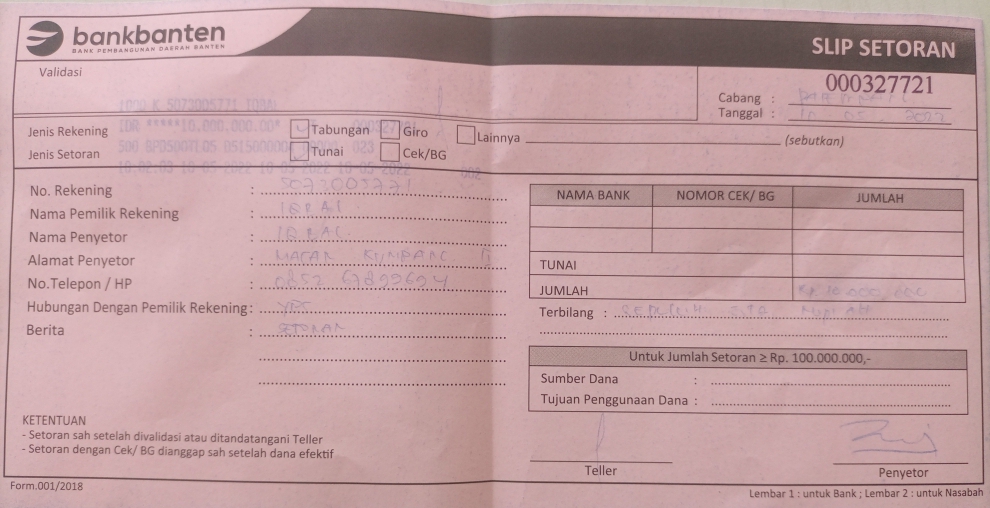 bankbanten
BANK PEMBANGUNAN DAERAH BANTEN
SLIP SETORAN
Validasi
000327721
Cabang :
Tanggal : 10 05 2022
1000 K 5073005771 IQBAL
IDR *****10.000.000.00*
10:02:03 10-05-2022 10-05-2022 10-05-2022 002
Jenis Rekening Tabungan Giro Lainnya (sebutkan)
Jenis Setoran Tunai Cek/BG
No. Rekening :
Nama Pemilik Rekening :
Nama Penyetor : IQBAL
Alamat Penyetor :
No.Telepon / HP :
Hubungan Dengan Pemilik Rekening :
Berita : SETORAN
NAMA BANK NOMOR CEK/ BG JUMLAH
TUNAI
JUMLAH Rp 10.000.000
Terbilang : SEPULUH JUTA RUPIAH
Untuk Jumlah Setoran ≥ Rp. 100.000.000,-
Sumber Dana :
Tujuan Penggunaan Dana :
KETENTUAN
- Setoran sah setelah divalidasi atau ditandatangani Teller
- Setoran dengan Cek/ BG dianggap sah setelah dana efektif
Teller Penyetor
Form.001/2018
Lembar 1 : untuk Bank ; Lembar 2 : untuk Nasabah